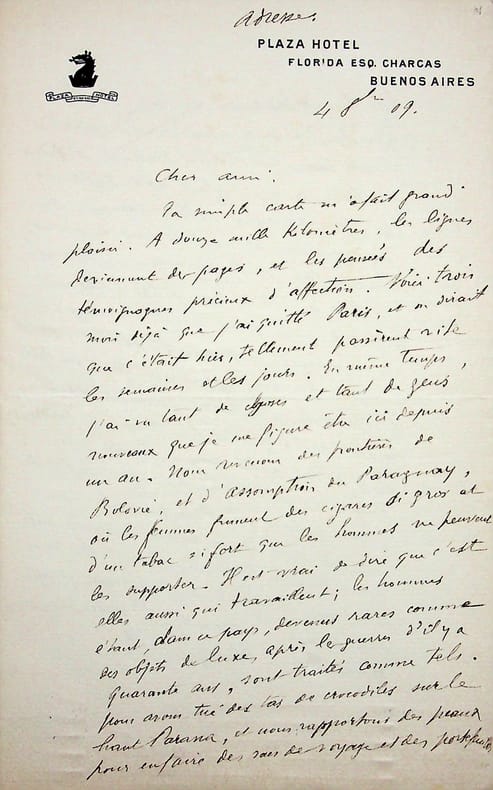 adresse.
PLAZA HOTEL
FLORIDA ESQ. CHARCAS
BUENOS AIRES
PLAZA HOTEL
4 8bre 09.
Cher ami.
Ta simple carte m'a fait grand
plaisir. A douze mille Kilomètres, les lignes
deviennent des pages, et les pensées des
témoignages précieux d'affection. Voici trois
mois déjà que j'ai quitté Paris, et on dirait
que c'était hier, tellement passèrent vite
les semaines et les jours. En même temps,
j'ai vu tant de choses et tant de gens
nouveaux que je me figure être ici depuis
un an. Nous revenons des frontières de
Bolivie, et d'Assomption du Paraguay,
où les femmes fument des cigares si gros et
d'un tabac si fort que les hommes ne peuvent
les supporter. Il est vrai de dire que c'est
elles aussi qui travaillent; les hommes
étant, dans ce pays, devenus rares comme
des objets de luxe, après les guerres d'il y a
quarante ans, sont traités comme tels.
Nous avons tué des tas de crocodiles sur le
haut Parana, et nous rapportons des peaux
pour en faire des sacs de voyage et des portefeuilles